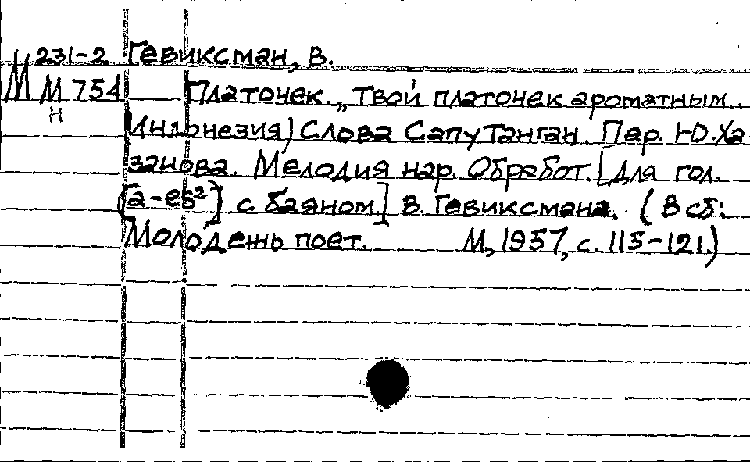 М 231-2 Гевиксман, В.
М 754 Платочек. „Твой платочек ароматным..
н Индонезия) Слова Сапутанган. Пер. Ю. Ха-
занова. Мелодия нар. Обработ. [для гол.
(a-es²) с баяном] В. Гевиксмана. (В сб:
Молодежь поет. М, 1957, с. 115-121.)